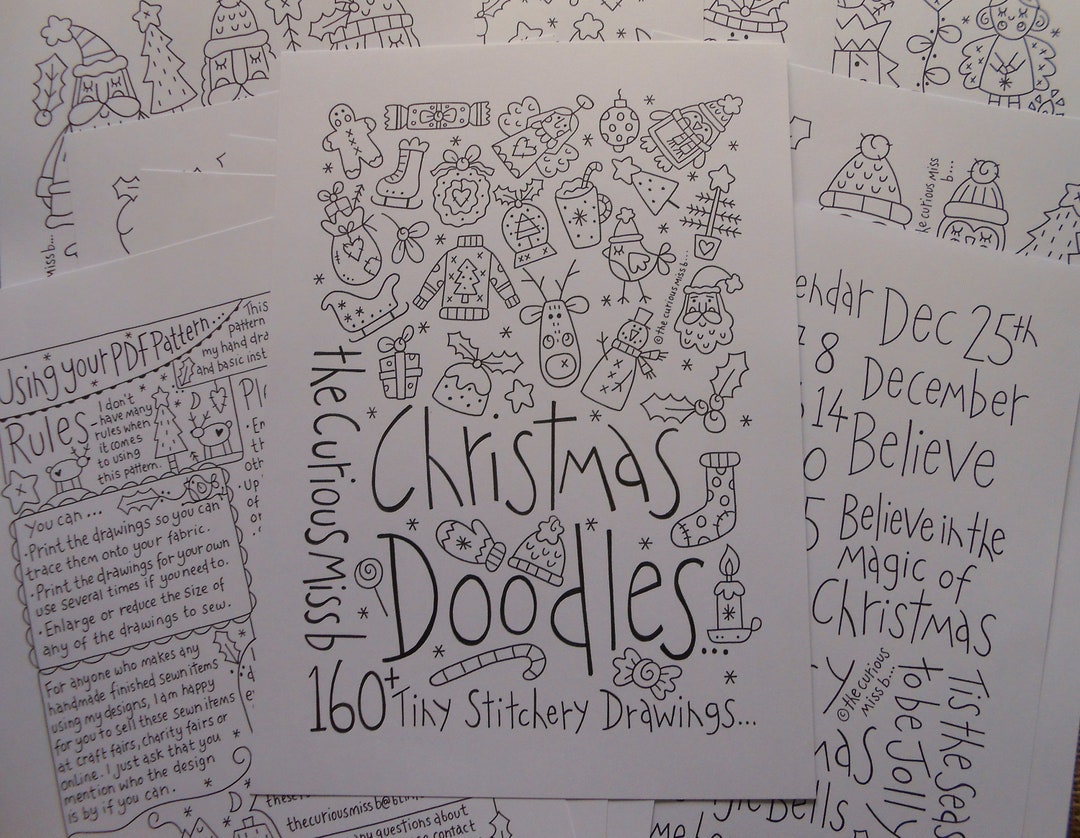 the Curious Miss b
©the curious miss b...
Christmas
Doodles...
160+ Tiny Stitchery Drawings...
Using your PDF Pattern...
This
pattern
my hand dra
and basic inst
Rules
I don't
have many
rules when
it comes
to using
this pattern.
You can...
·Print the drawings so you can
trace them onto your fabric.
·Print the drawings for your own
use several times if you need to.
·Enlarge or reduce the size of
any of the drawings to sew.
For anyone who makes any
handmade finished sewn items
using my designs, I am happy
for you to sell these sewn items
at craft fairs, charity fairs or
online. I just ask that you
mention who the design
is by if you can.
thecuriousmissb@
any questions about
contact
miss b...
the curious miss
b...
endar Dec 25th
8 December
14 Believe
0
5 Believe in the
Magic of
Christmas
©the curious
miss b...
Tis the Seas
to be Jolly
mas
Bells